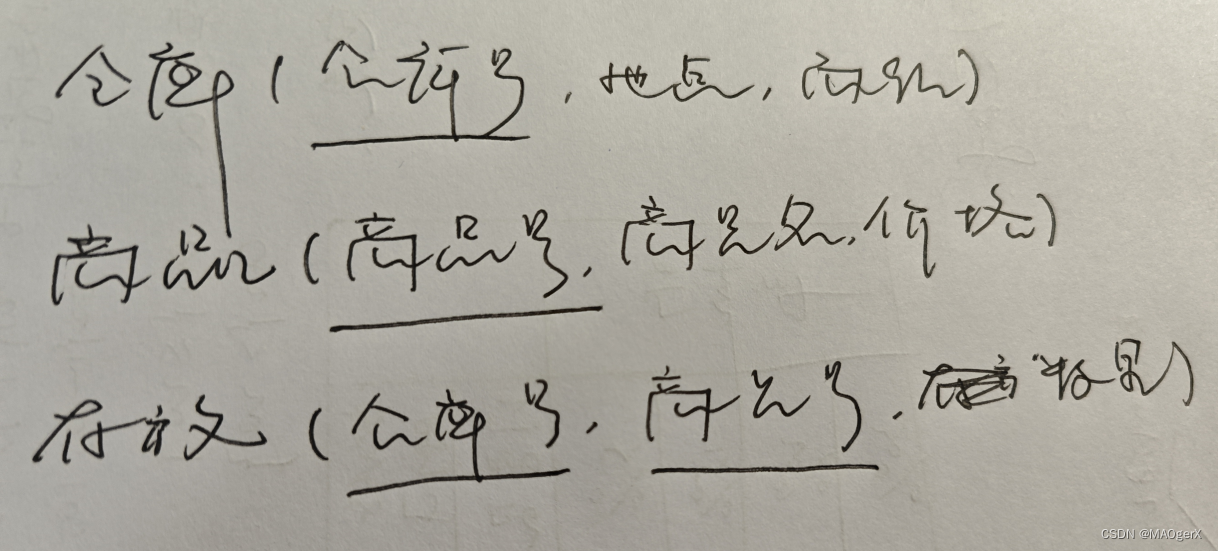 仓库(仓库号,地点,面积)
商品(商品号,商品名,价格)
存放(仓库号,商品号,数量)
CSDN @MAOgerX